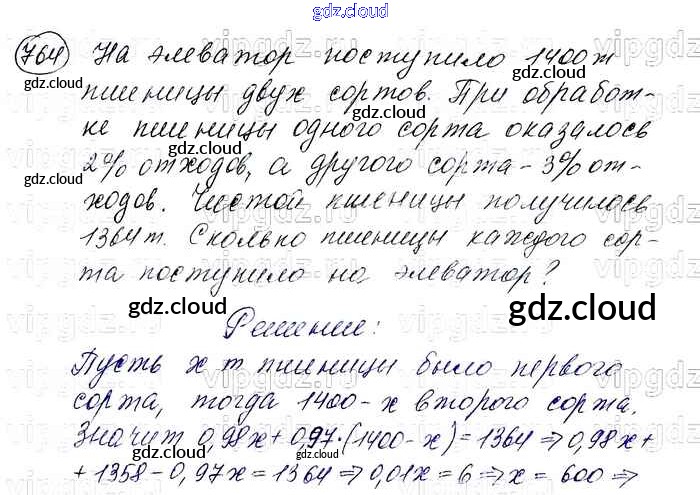 gdz.cloud
764 На элеватор поступило 1400 т
пшеницы двух сортов. При обработ-
ке пшеницы одного сорта оказалось
2% отходов, а другого сорта - 3% от-
ходов. Чистой пшеницы получилось
1364 т. Сколько пшеницы каждого сор-
та поступило на элеватор?
gdz.cloud
Решение:
Пусть x т пшеницы было первого
сорта, тогда 1400-x второго сорта.
Значит 0,98x + 0,97·(1400-x) = 1364 ⇒ 0,98x +
+ 1358 - 0,97x = 1364 ⇒ 0,01x = 6 ⇒ x = 600 ⇒